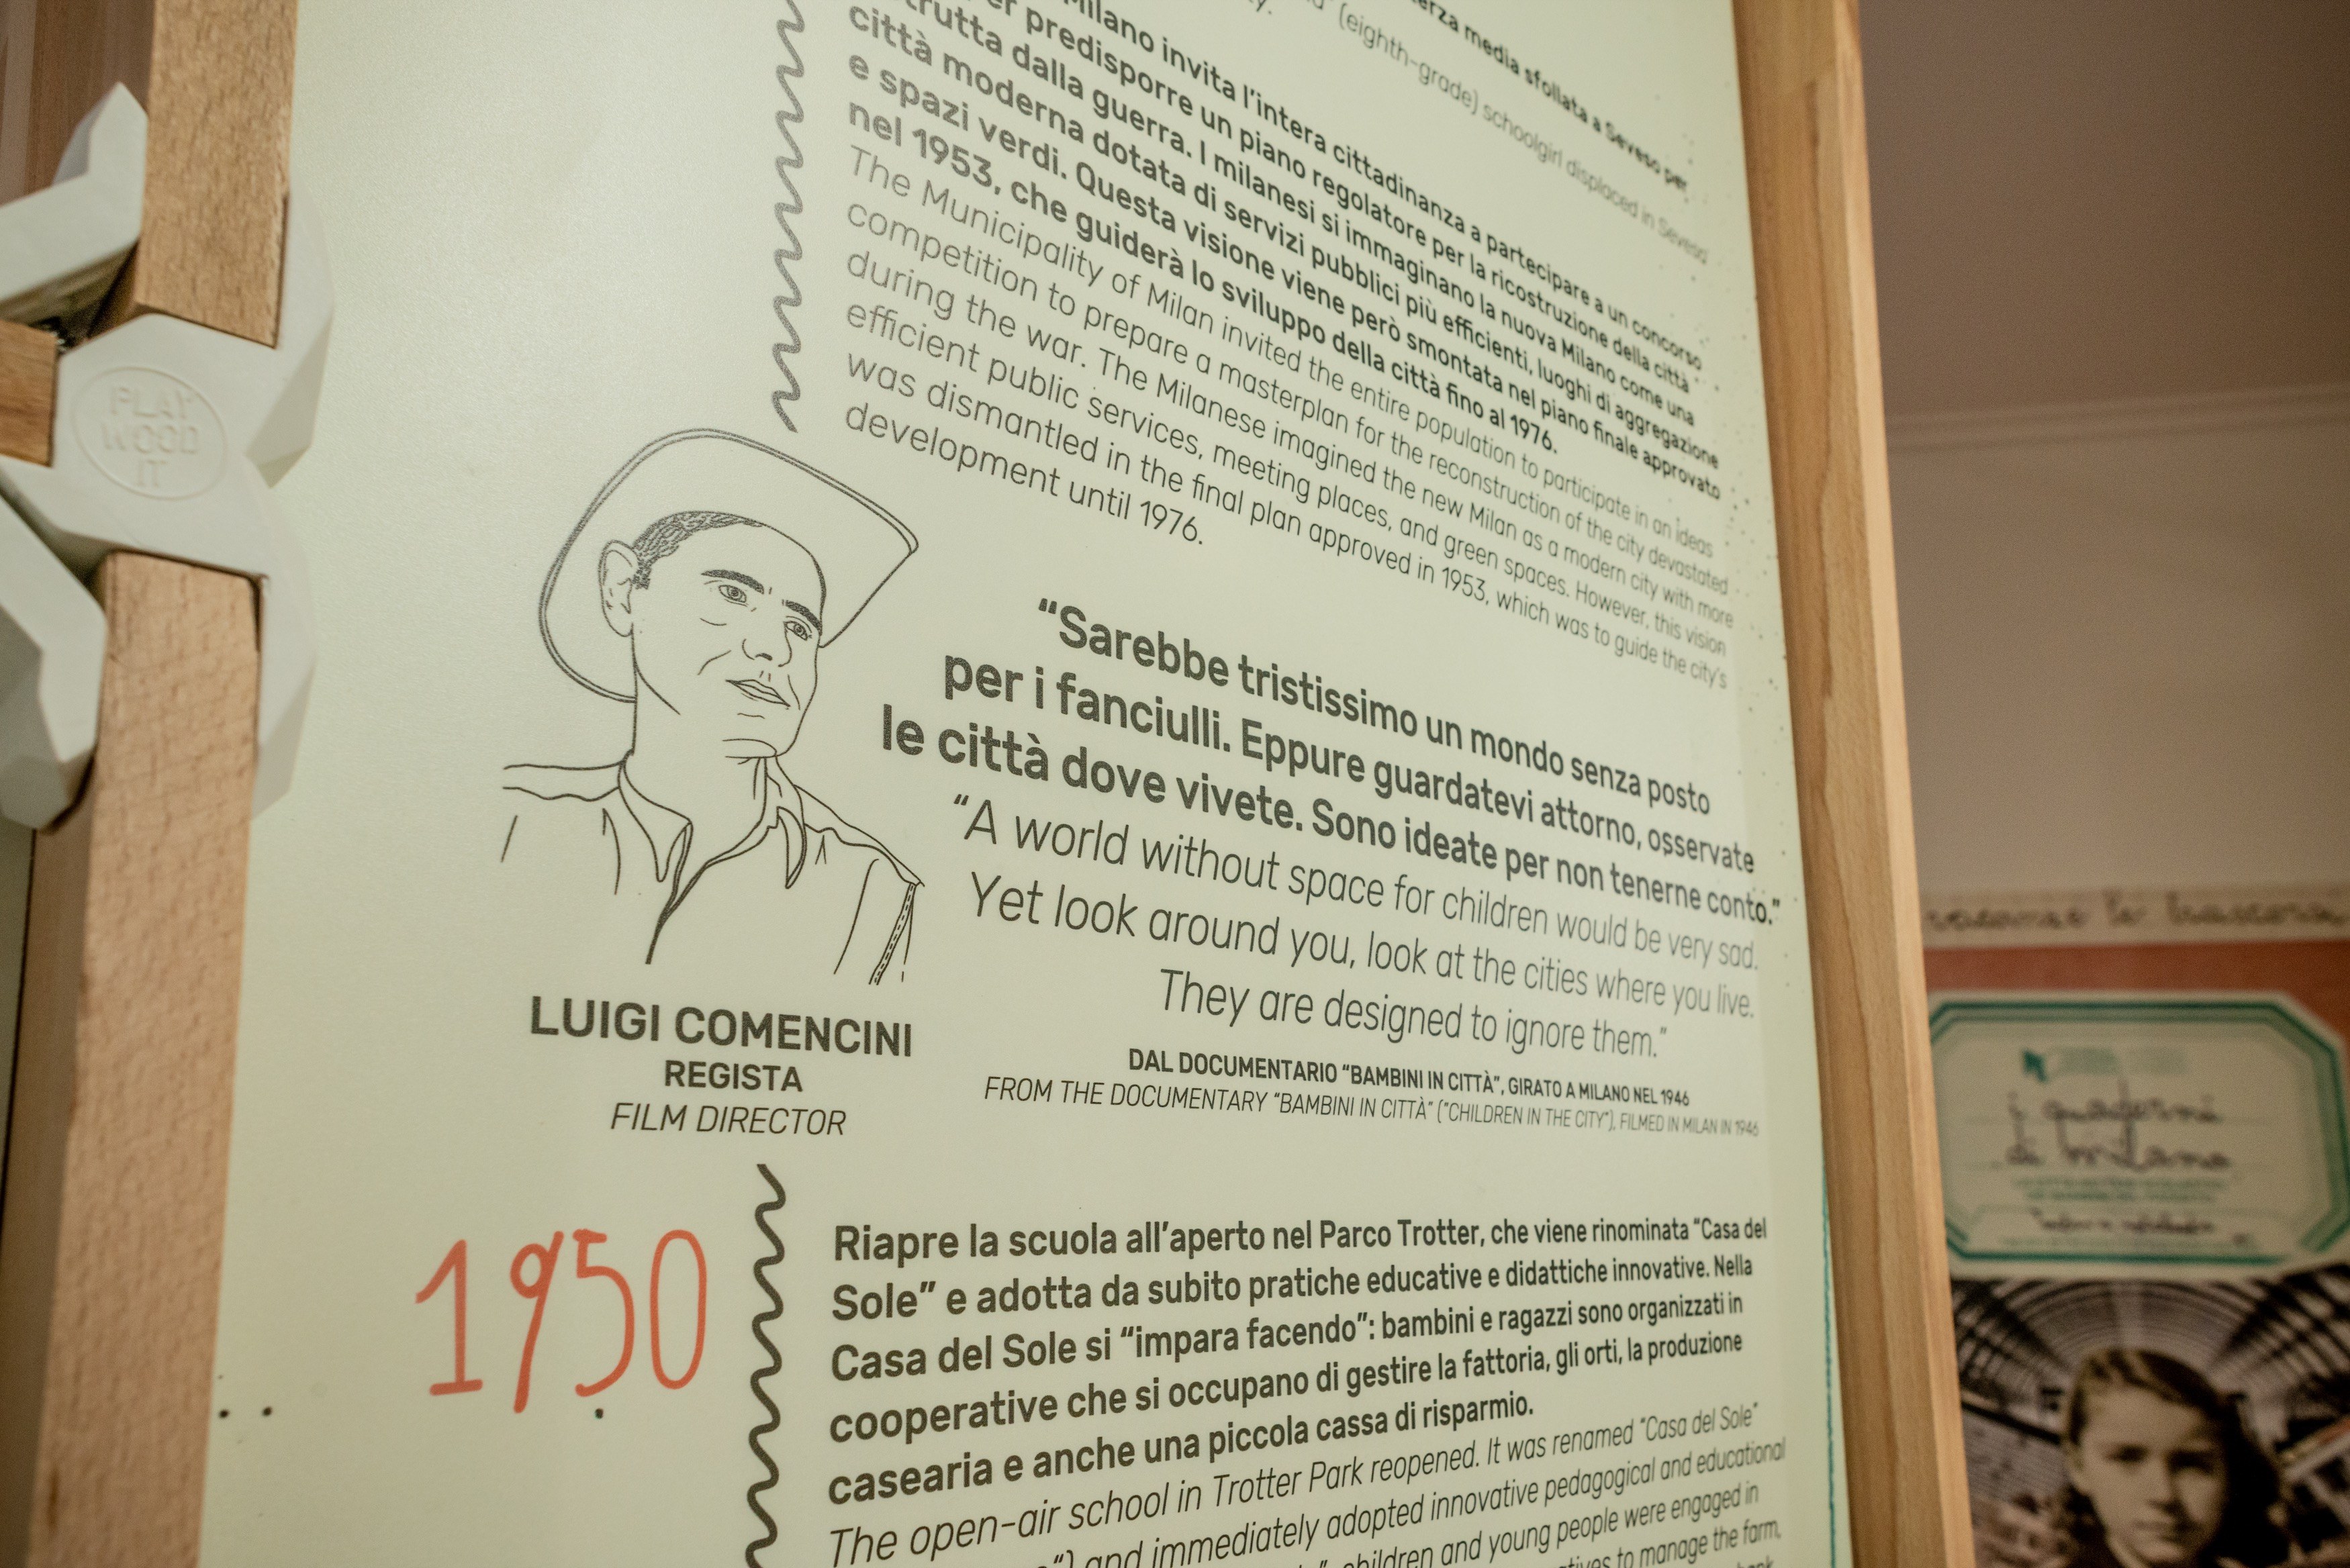 terza media sfollata a Seveso per
(eighth-grade) schoolgirl displaced in Seveso
Milano invita l'intera cittadinanza a partecipare a un concorso
predisporre un piano regolatore per la ricostruzione della città
dalla guerra. I milanesi si immaginano la nuova Milano come una
città moderna dotata di servizi pubblici più efficienti, luoghi di aggregazione
e spazi verdi. Questa visione viene però smontata nel piano finale approvato
nel 1953, che guiderà lo sviluppo della città fino al 1976.
The Municipality of Milan invited the entire population to participate in an ideas
competition to prepare a masterplan for the reconstruction of the city devastated
during the war. The Milanese imagined the new Milan as a modern city with more
efficient public services, meeting places, and green spaces. However, this vision
was dismantled in the final plan approved in 1953, which was to guide the city's
development until 1976.
PLAY
WOOD
IT
“Sarebbe tristissimo un mondo senza posto
per i fanciulli. Eppure guardatevi attorno, osservate
le città dove vivete. Sono ideate per non tenerne conto.”
“A world without space for children would be very sad.
Yet look around you, look at the cities where you live.
They are designed to ignore them.”
LUIGI COMENCINI
REGISTA
FILM DIRECTOR
DAL DOCUMENTARIO “BAMBINI IN CITTÀ”, GIRATO A MILANO NEL 1946
FROM THE DOCUMENTARY “BAMBINI IN CITTÀ” (“CHILDREN IN THE CITY”), FILMED IN MILAN IN 1946
1950
Riapre la scuola all’aperto nel Parco Trotter, che viene rinominata “Casa del
Sole” e adotta da subito pratiche educative e didattiche innovative. Nella
Casa del Sole si “impara facendo”: bambini e ragazzi sono organizzati in
cooperative che si occupano di gestire la fattoria, gli orti, la produzione
casearia e anche una piccola cassa di risparmio.
The open-air school in Trotter Park reopened. It was renamed “Casa del Sole”
and immediately adopted innovative pedagogical and educational
children and young people were engaged in
to manage the farm,
bank
i quaderni
di milano